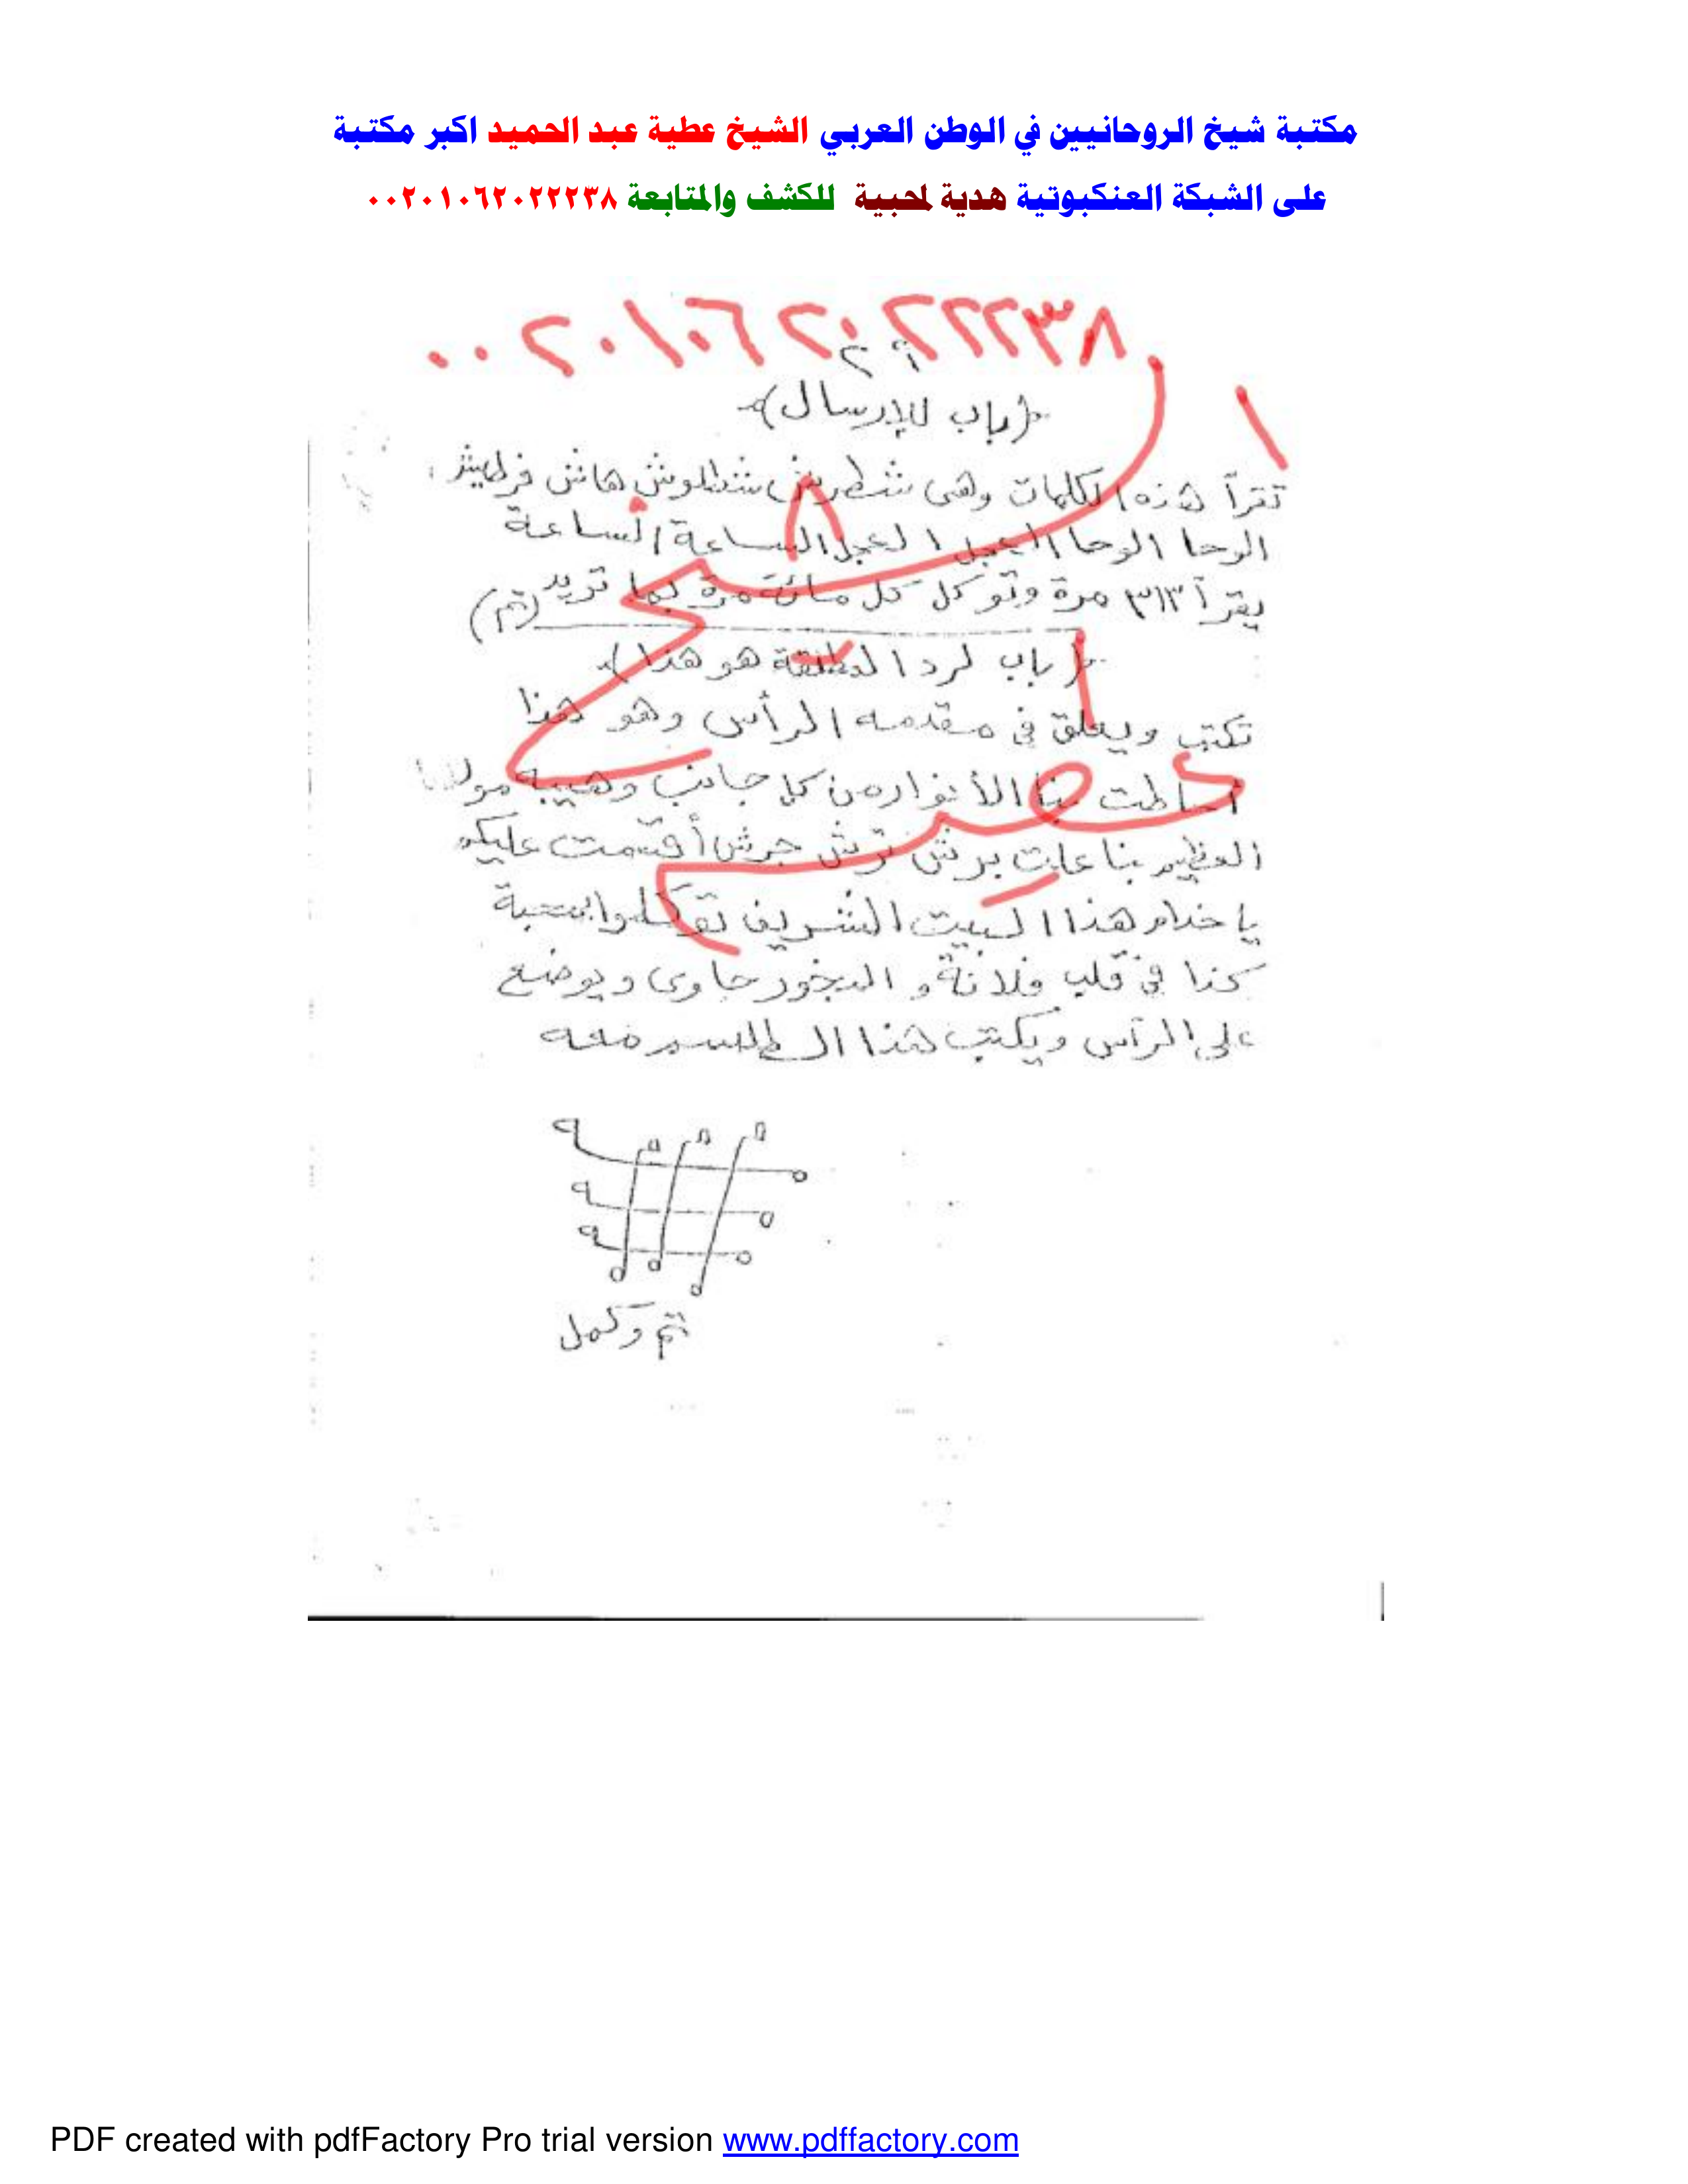 مكتبة شيخ الروحانيين في الوطن العربي الشيخ عطية عبد الحميد اكبر مكتبة
على الشبكة العنكبوتية هدية لمحبية للكشف والمتابعة ٠٠٢٠١٠٦٢٠٢٢٢٣٨
٠٠٢٠١٠٦٢٠٢٢٢٣٨
(باب للإرسال)
تقرأ هذه الكلمات وهى شطريش شطلوش هاش
الوحا الوحا العجل العجل الساعة الساعة
يقرأ ٣١٣ مرة وتوكل كل مائة مرة بما تريد (تم)
(باب لرد المطلقة هو هذا)
تكتب ويعلق فى مقدمه الرأس وهو هذا
أحاطت بنا الأنوار من كل جانب وهيبه مولانا
العظيم بنا برش ترش جرش أقسمت عليكم
يا خدام هذا البيت الشريف توكلوا بمحبة
كذا فى قلب فلانة و البخور جاوى ويوضع
على الرأس ويكتب هذا الطلسم معه
تم وكمل
PDF created with pdfFactory Pro trial version www.pdffactory.com